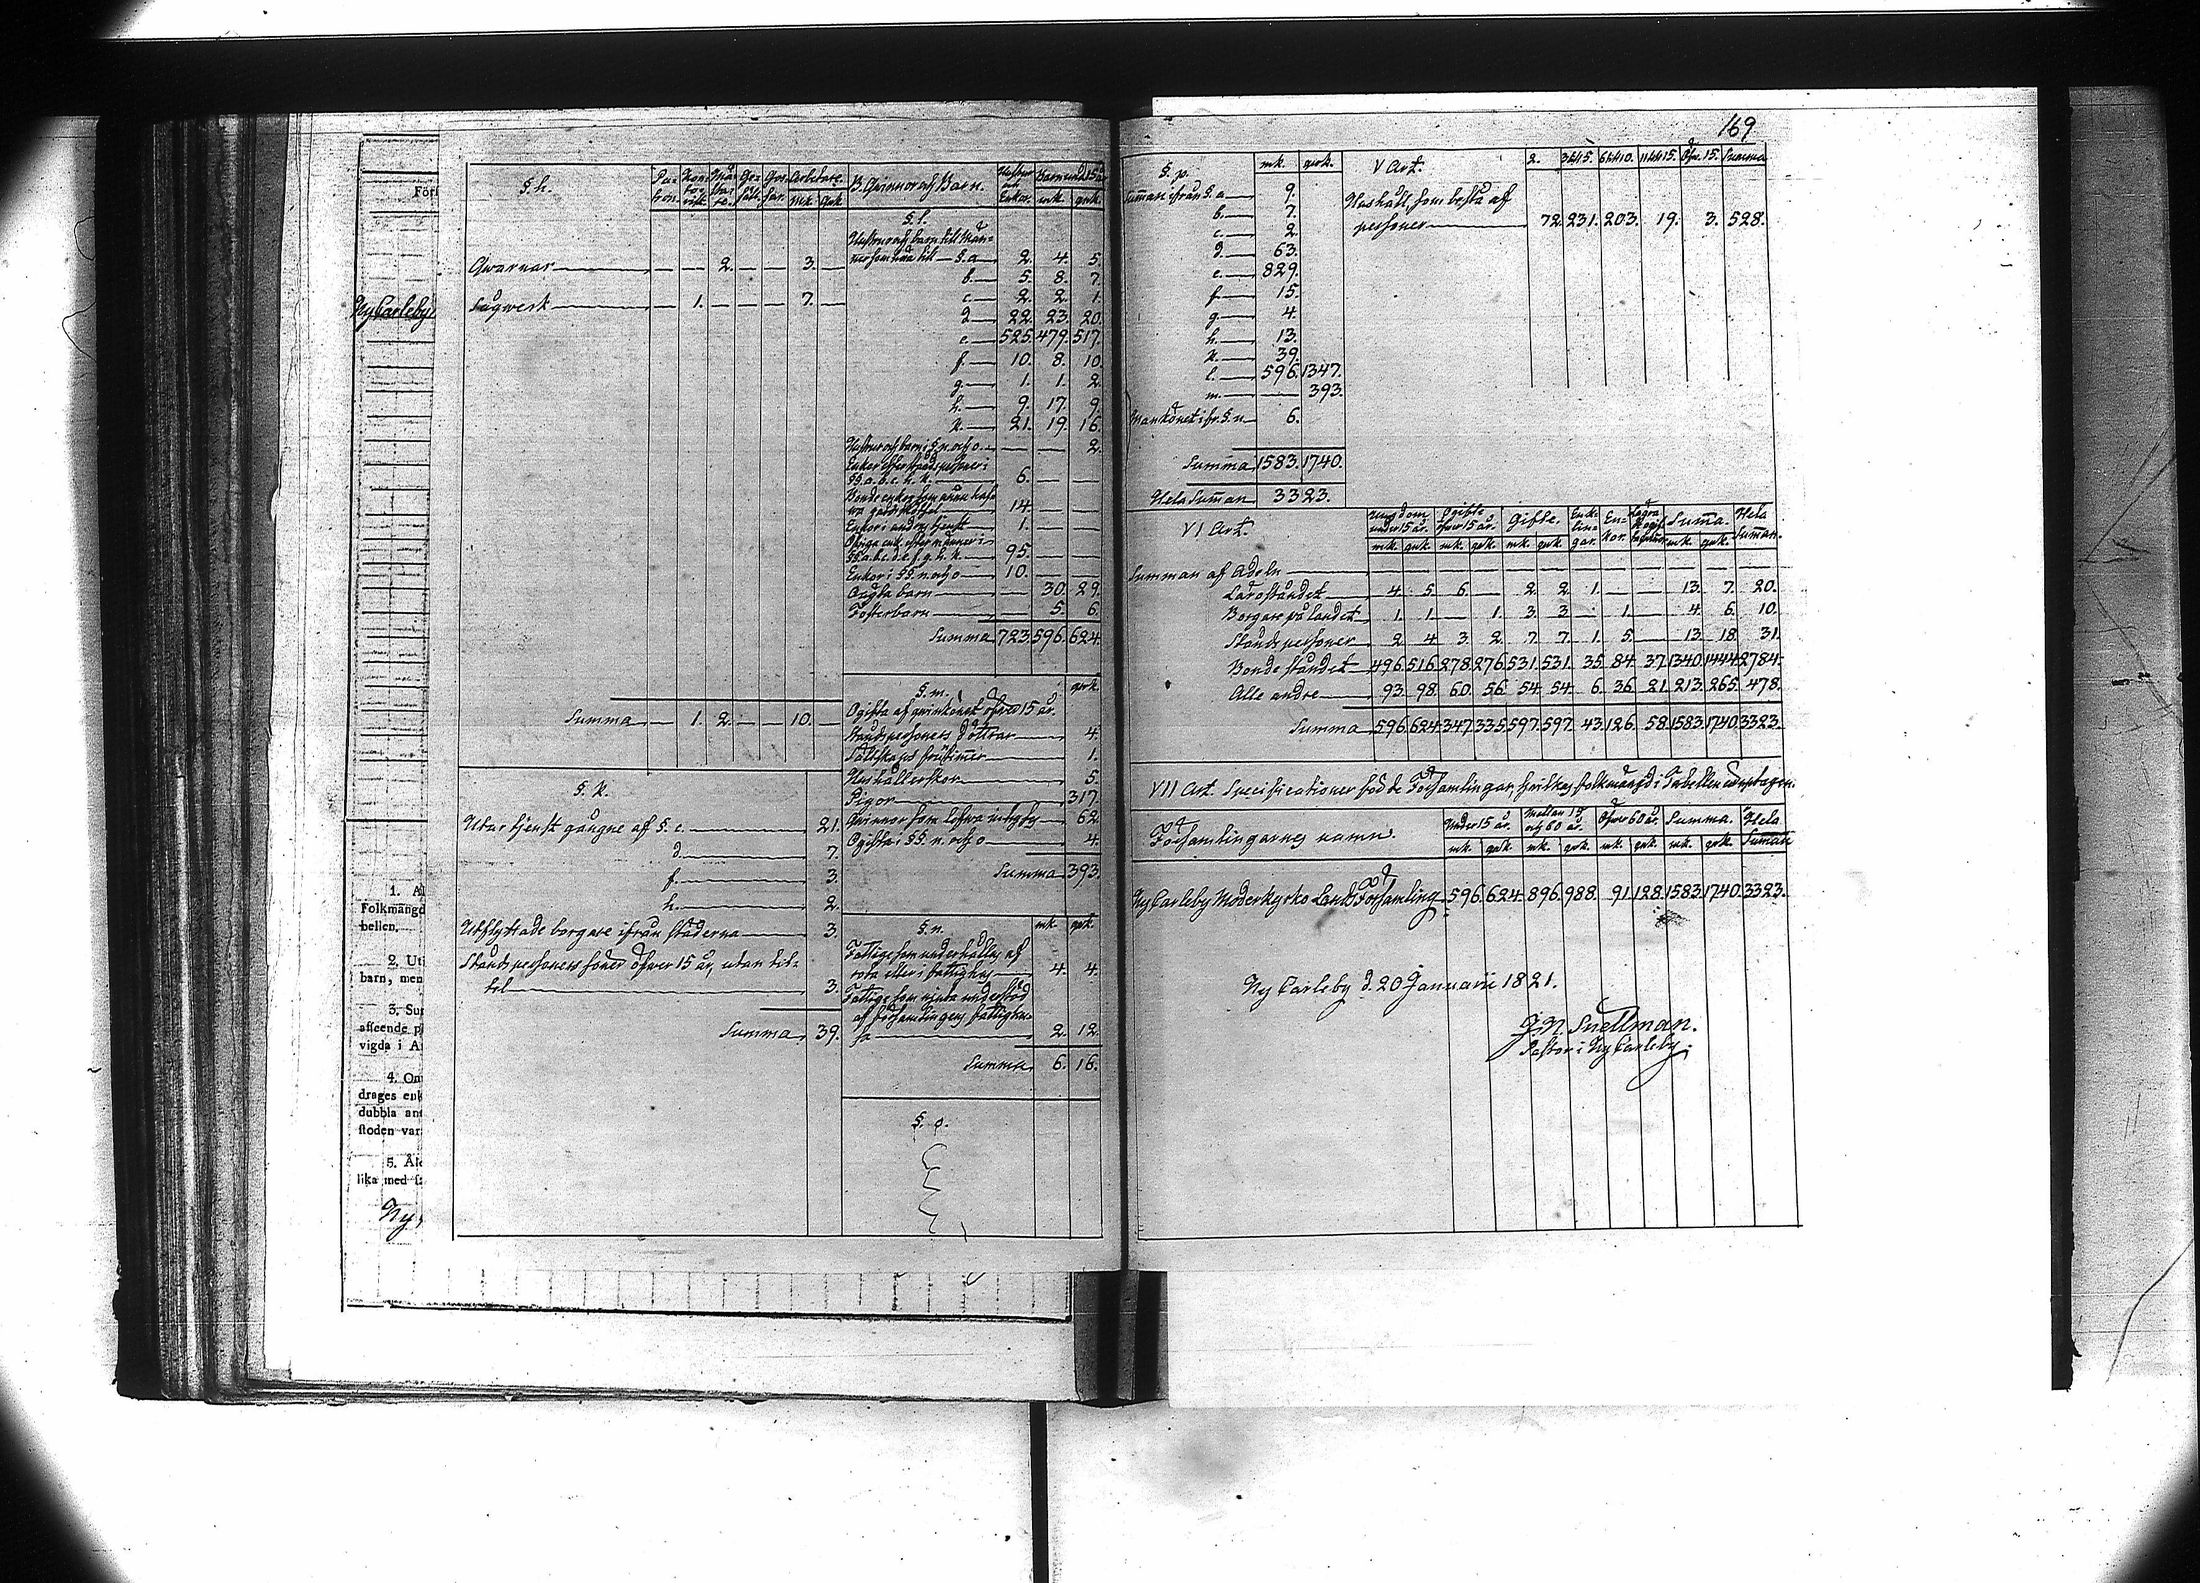 169
Förf
Ny Carleby
1. Al
Folkmängd
bellen.
2. Uti
barn, men
3. Sum
affeende p
vigda i A
4. Om
drages enk
dubbla ant
ftoden var
5. Åld
lika med f
Ny
§. h.
mk. quk.
Qwarnar — — 2. — — 3. —
Sågwerk — 1. — — — 7. —
Summa — 1. 2. — — 10. —
§. k.
Utur tjenst gångne af §. e. 21.
d. 7.
f. 3.
h. 2.
Utflyttade borgare ifrån städerna 3.
Ståndspersoners söner öfwer 15 år, utan tit-
tel 3.
Summa 39.
B. Qwinnor och Barn.
Hustrur och Enkor. Barn under 15 år
mk. quk.
§. l.
Hustrur och barn till Män-
ner som höra till §. a 2. 4. 5.
b. 5. 8. 7.
c. 2. 2. 1.
d. 22. 23. 20.
e. 525. 479. 517.
f. 10. 8. 10.
g. 1. 1. 2.
h. 9. 17. 9.
k. 21. 19. 16.
Hustrur och barn i §. n. och o. — — 2.
Enkor efter ståndspersoner i
§§. a. b. c. h. k. 6. — —
Bonde enkor som ännu haf-
wa 14. — —
Enkor i andras tjenst 1. — —
Öfriga enk. efter männer i
§§. a. b. c. d. e. f. g. h. k. 95. — —
Enkor i §§. n. och o 10. — —
Oägta barn — 30. 29.
Fosterbarn — 5. 6.
Summa 723. 596. 624.
§. m. quk.
Ogifta af qwinkönet öfwer 15 år.
Ståndspersoners döttrar 4.
Sällskaps 1.
Hushållerskor 5.
Pigor 317.
Qwinnor som 62.
Ogifta i §§. n. och o 4.
Summa 393.
§. n. mk. quk.
Fattige som underhållas af
rota eller i fattighus 4. 4.
Fattige som njuta understöd
af församlingens fattigkas-
sa 2. 12.
Summa 6. 16.
§. o.
§. p. mk. quk.
Summan ifrån §. a 9.
b. 7.
c. 2.
d. 63.
e. 829.
f. 15.
g. 4.
h. 13.
k. 39.
l. 596. 1347.
m. — 393.
Mankönet ifr. §. n 6.
Summa 1583. 1740.
Hela Summan 3323.
V Art. 2. 3 till 5. 6 till 10. 11 till 15. Öfw. 15. Summa
Hushåll, som bestå af
personer 72. 231. 203. 19. 3. 528.
VI Art. Ungdom under 15 år. Ogifte öfwer 15 år. Gifte. Enk-lin-gar. En-kor. Summa. Hela Summan.
mk. quk. mk. quk. mk. quk. mk. quk.
Summan af Adeln — — — — — — — — — — — —
Läroståndet 4. 5. 6. — 2. 2. 1. — — 13. 7. 20.
Borgare på landet 1. 1. — 1. 3. 3. — 1. — 4. 6. 10.
Ståndspersoner 2. 4. 3. 2. 7. 7. 1. 5. — 13. 18. 31.
Bonde ståndet 496. 516. 278. 276. 531. 531. 35. 84. 37. 1340. 1444. 2784.
Alle andre 93. 98. 60. 56. 54. 54. 6. 36. 21. 213. 265. 478.
Summa 596. 624. 347. 335. 597. 597. 43. 126. 58. 1583. 1740. 3323.
VII Art. Specification öfwer de Församlingar, hwilkas folkmängd i Tabellen upptagen.
Församlingarnes namn. Under 15 år. Mellan 15 och 60 år. Öfwer 60 år. Summa. Hela Suman
mk. quk. mk. quk. mk. quk. mk. quk.
Ny Carleby Moderkyrko Lands Församling 596. 624. 896. 988. 91. 128. 1583. 1740. 3323.
Ny Carleby d. 20 Januarii 1821.
J. N. Snellman.
Pastor i Ny Carleby.